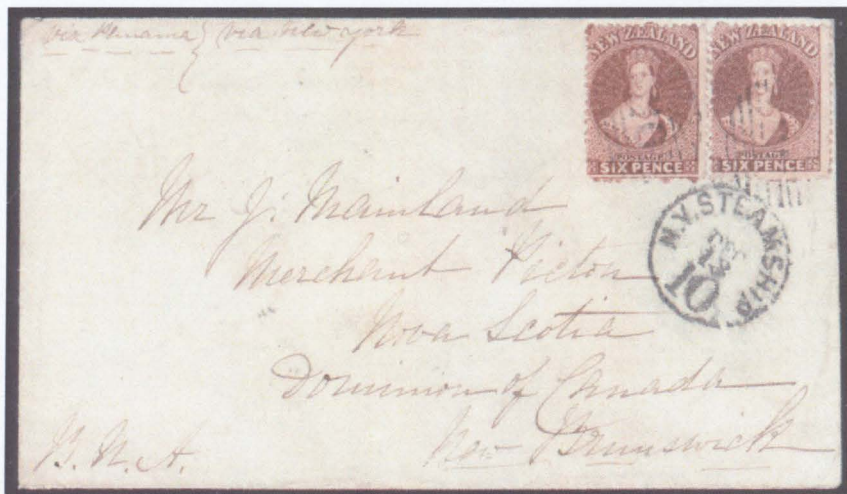 via Panama } via New York
NEW ZEALAND
POSTAGE
SIX PENCE
NEW ZEALAND
POSTAGE
SIX PENCE
N.Y. STEAMSHIP
10
Mr J. Mainland
Merchant Pictou
Nova Scotia
Dominion of Canada
New Brunswick
B. N. A.